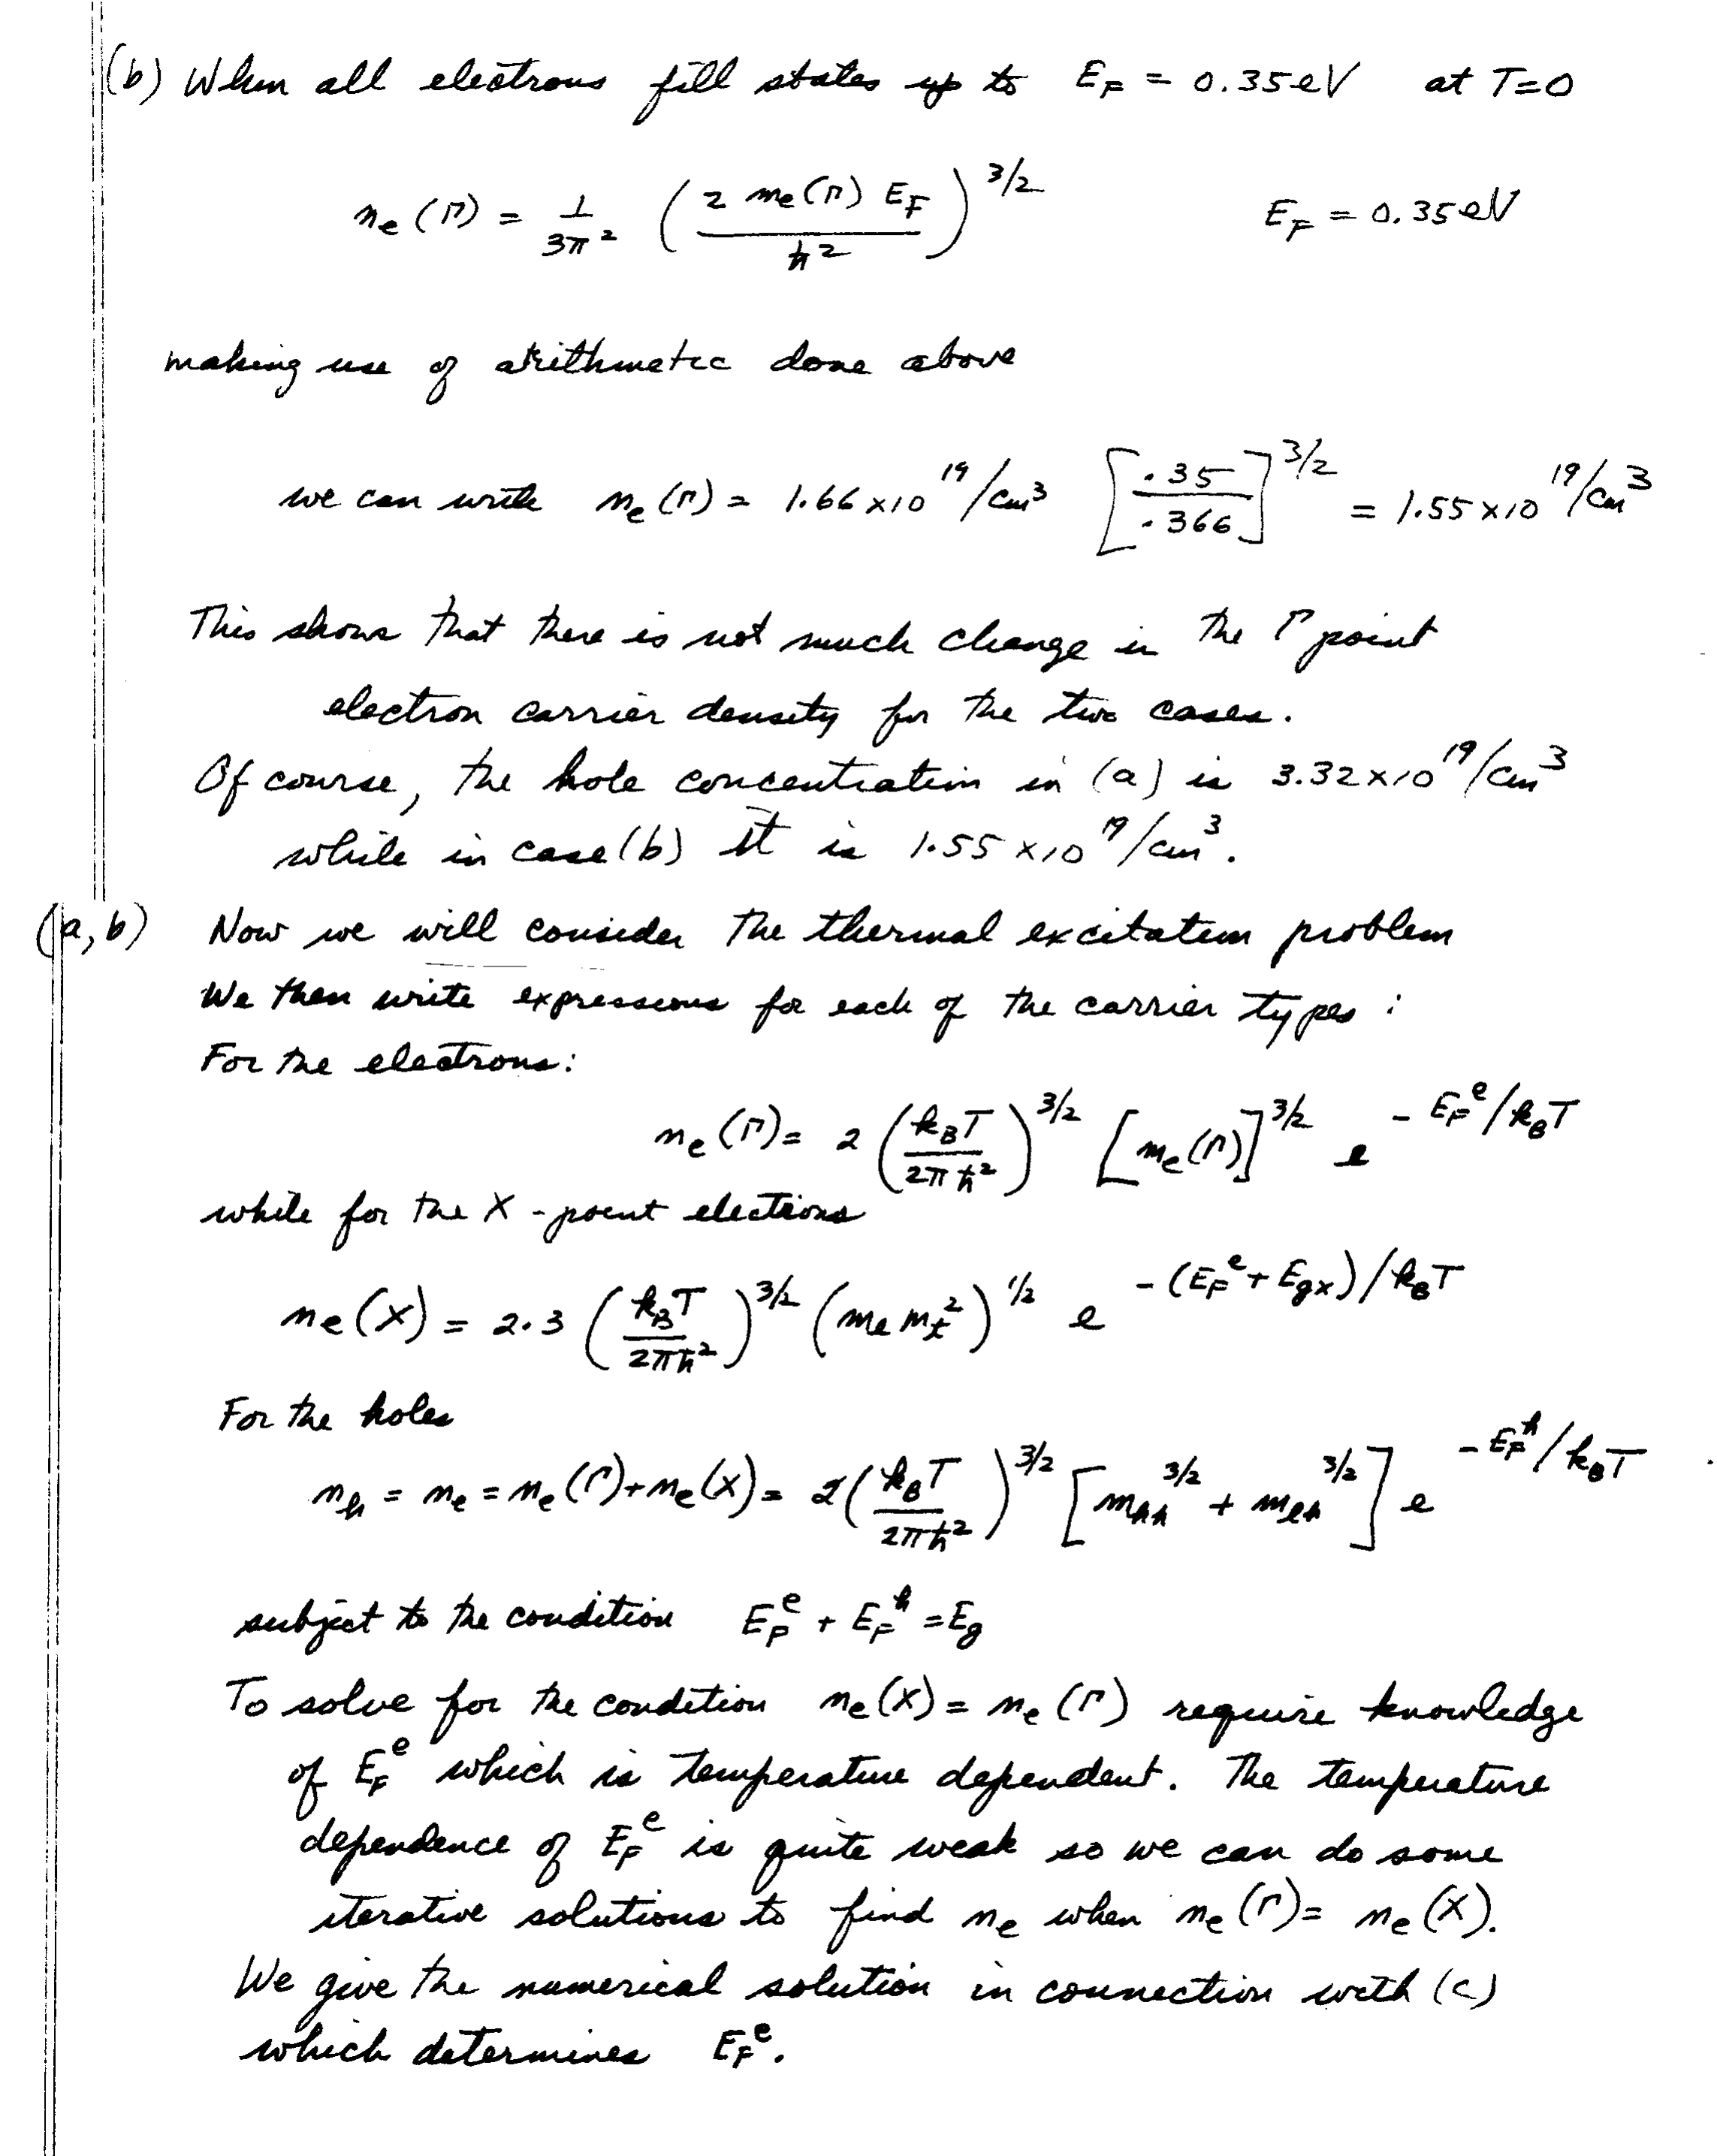 (b) When all electrons fill states up to E_F = 0.35eV at T=0
n_e(Γ) = 1/3π² (2 m_e(Γ) E_F / ħ²)^3/2 E_F = 0.35eV
making use of arithmetic done above
we can write n_e(Γ) = 1.66 x10^19/cm³ [.35/.366]^3/2 = 1.55 x10^19/cm³
This shows that there is not much change in the Γ point
electron carrier density for the two cases.
Of course, the hole concentration in (a) is 3.32x10^19/cm³
while in case (b) it is 1.55 x10^19/cm³.
(a,b) Now we will consider the thermal excitation problem
We then write expressions for each of the carrier types:
For the electrons:
n_e(Γ) = 2 (k_BT / 2πħ²)^3/2 [m_e(Γ)]^3/2 e^-E_F^e/k_BT
while for the X-point electrons
n_e(X) = 2·3 (k_BT / 2πħ²)^3/2 (m_l m_t²)^1/2 e^-(E_F^e + E_gx)/k_BT
For the holes
n_h = n_e = n_e(Γ) + n_e(X) = 2 (k_BT / 2πħ²)^3/2 [m_hh^3/2 + m_lh^3/2] e^-E_F^h/k_BT
subject to the condition E_F^e + E_F^h = E_g
To solve for the condition n_e(X) = n_e(Γ) require knowledge
of E_F^e which is temperature dependent. The temperature
dependence of E_F^e is quite weak so we can do some
iterative solutions to find n_e when n_e(Γ) = n_e(X).
We give the numerical solution in connection with (c)
which determines E_F^e.